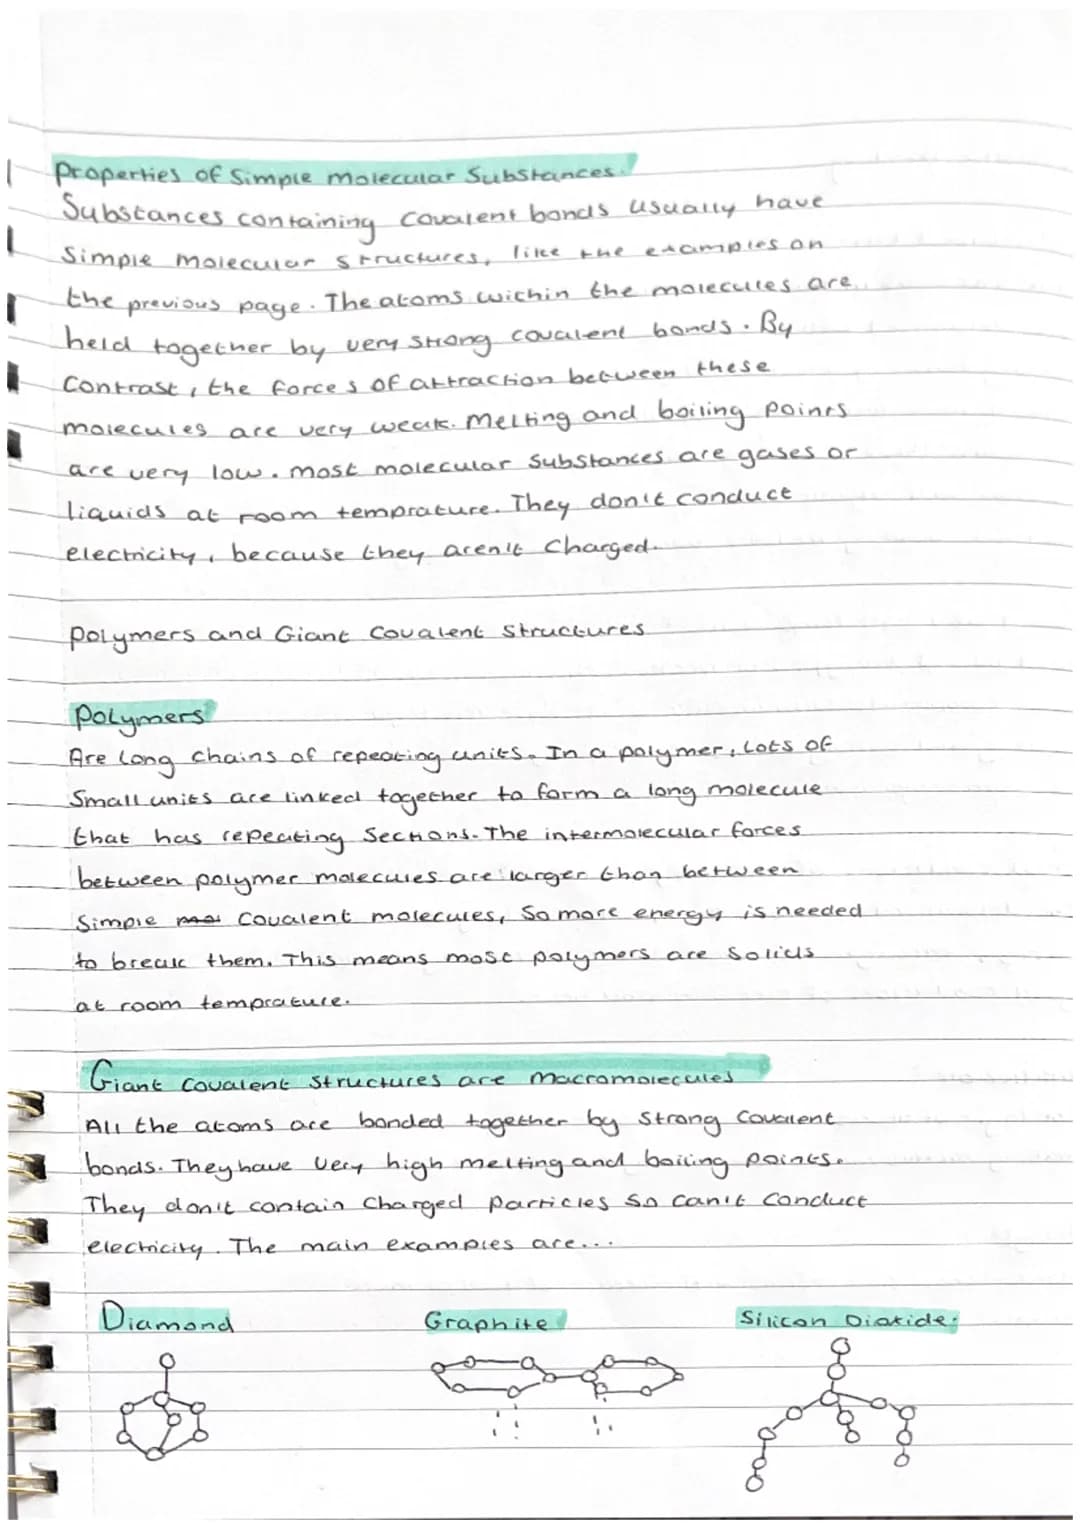 Properties of Simple Molecular Substances.
Substances containing covalent bonds usually have
Simple molecular structures, like the examples on
the previous page. The atoms within the molecules are
held together by very strong covalent bonds. By
Contrast, the forces of attraction between these
molecules are very weak. Melting and boiling points
are very low. most molecular substances are gases or
liquids at room temprature. They don't conduct
electricity, because they aren't Charged.
Polymers and Giant Covalent Structures
Polymers
Are Long Chains of repeating units. In a polymer, Lots of
Small units are linked together to form a long molecule
that has repeating Sections. The intermolecular forces
between polymer molecules are larger than between
Simple mol Covalent molecules, So more energy is needed
to break them. This means most polymers are Solids
at room temprature.
Giant Covalent Structures are Macromolecules
All the atoms are bonded together by Strong Covalent
bonds. They have Very high melting and boiling points.
They don't contain Charged Particles So can't Conduct
electricity. The main examples are...
Diamond Graphite Silicon Dioxide.